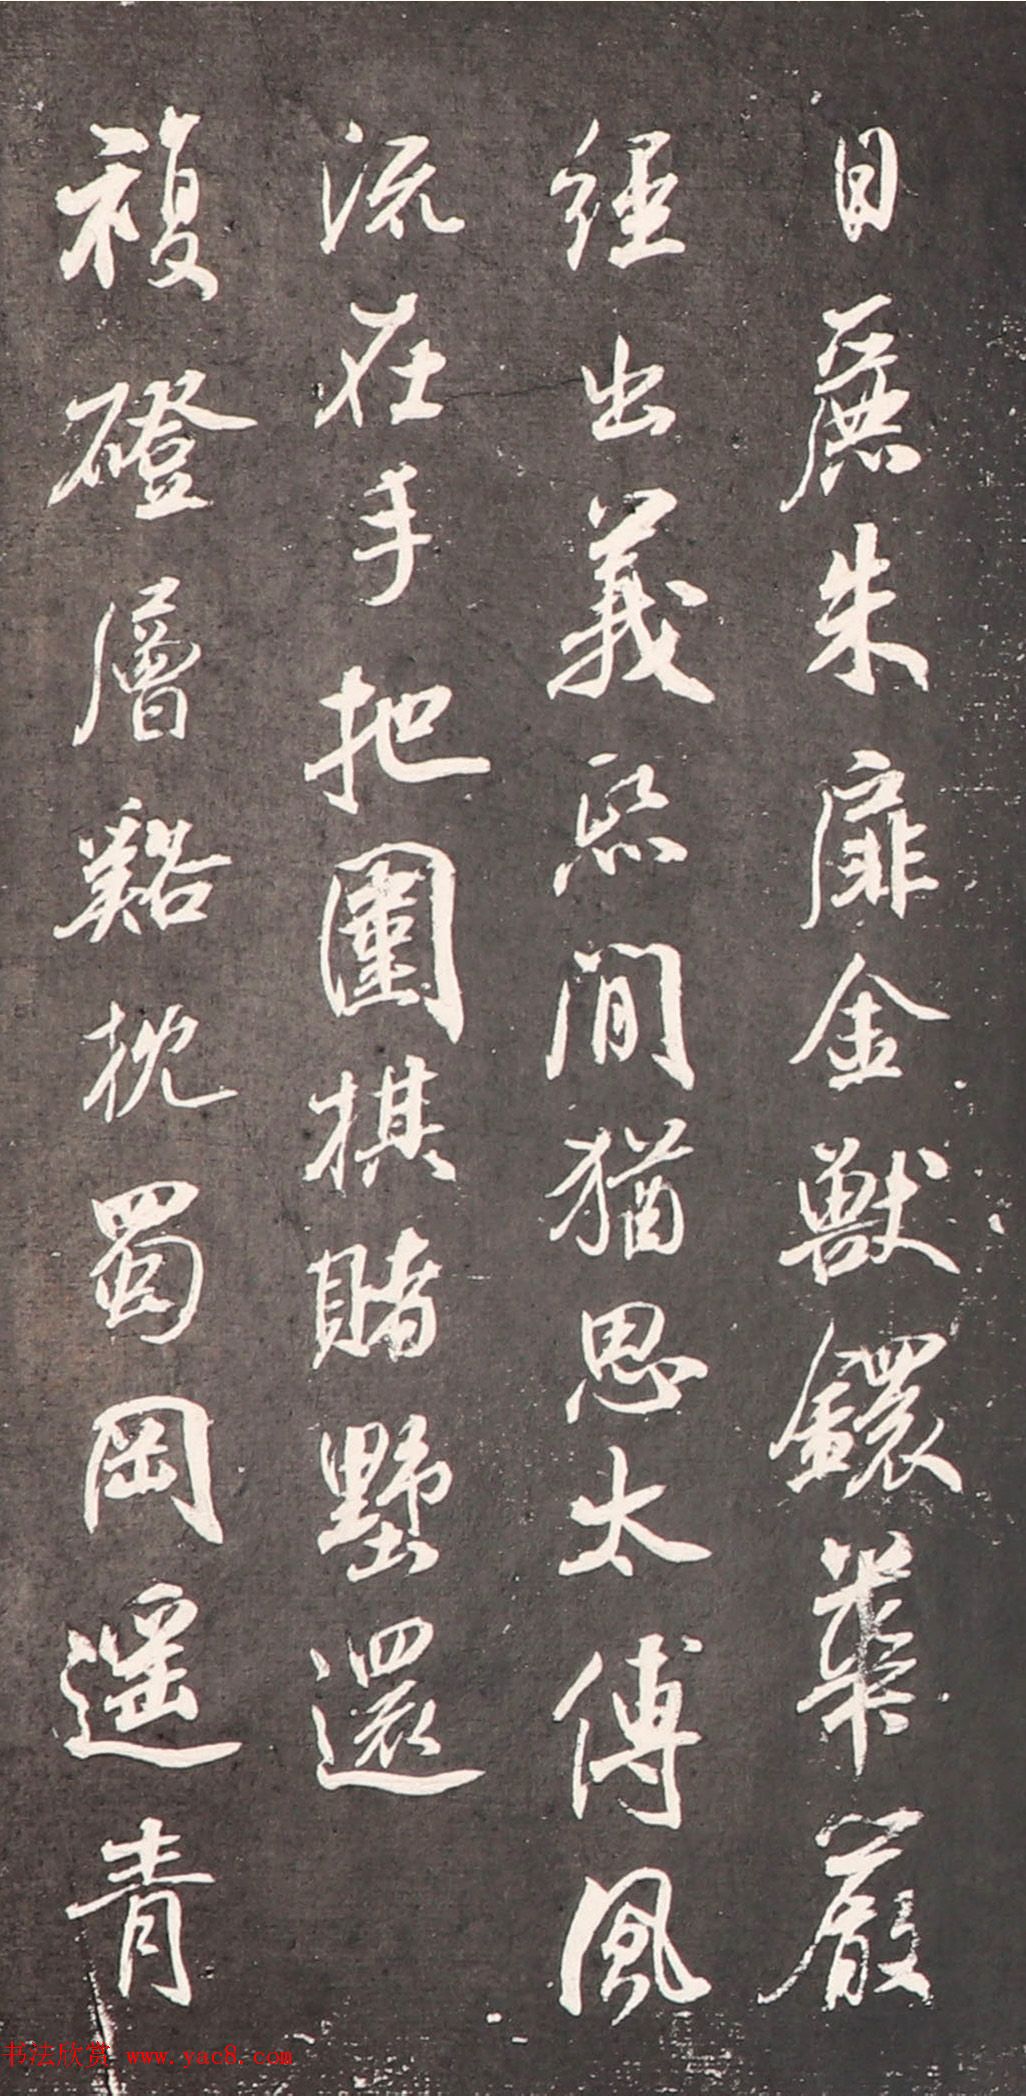 日麗朱扉金獸鐶華嚴
經出義熙間猶思太傅風
流在手把圍棋賭墅還
複磴層谿枕蜀岡遥青
书法欣赏 www.yac8.com